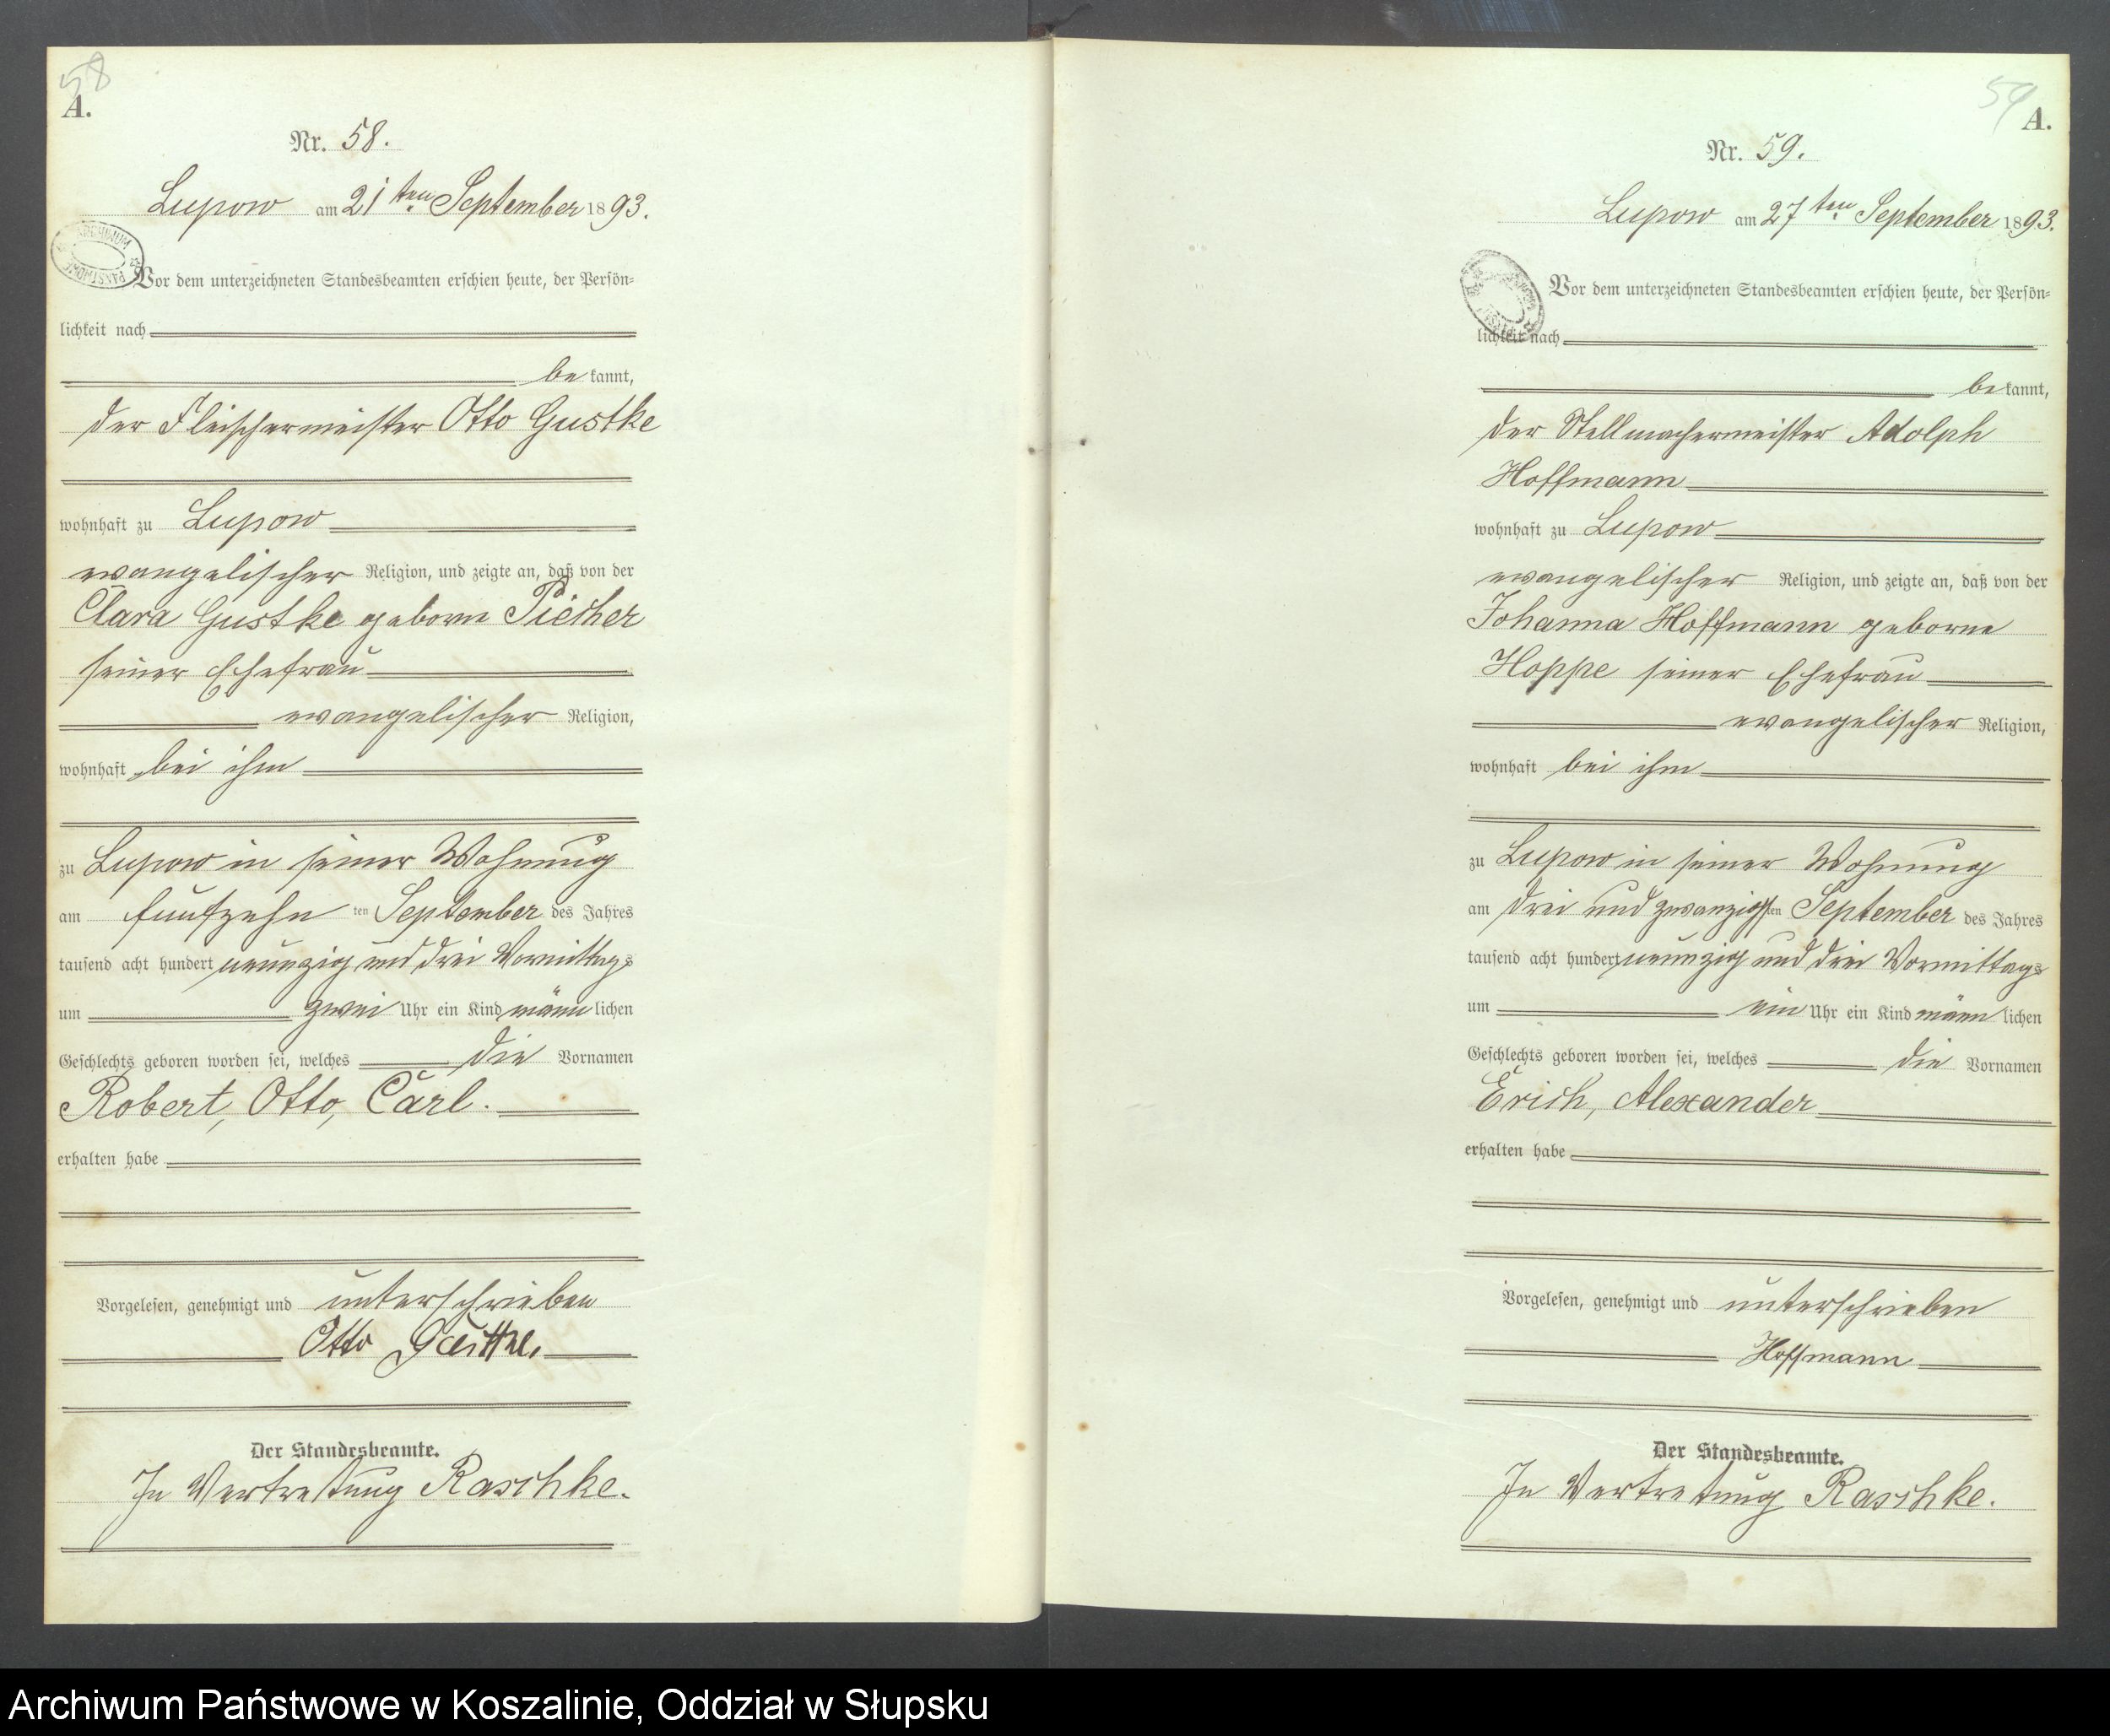 58
A.
Nr. 58.
Lupow am 21ten September 1893.
Vor dem unterzeichneten Standesbeamten erschien heute, der Persön-
lichkeit nach
bekannt,
der Fleischermeister Otto Gustke
wohnhaft zu Lupow
evangelischer Religion, und zeigte an, daß von der
Clara Gustke geborne
seiner Ehefrau
evangelischer Religion,
wohnhaft bei ihm
zu Lupow in seiner Wohnung
am fünfzehn ten September des Jahres
tausend acht hundert neunzig und drei Vormittags
um zwei Uhr ein Kind männlichen
Geschlechts geboren worden sei, welches die Vornamen
Robert, Otto, Carl.
erhalten habe
Vorgelesen, genehmigt und unterschrieben
Otto Gustke.
Der Standesbeamte.
In Vertretung Raschke.
59
A.
Nr. 59.
Lupow am 27ten September 1893.
Vor dem unterzeichneten Standesbeamten erschien heute, der Persön-
lichkeit nach
bekannt,
der Stellmachermeister Adolph
Hoffmann
wohnhaft zu Lupow
evangelischer Religion, und zeigte an, daß von der
Johanna Hoffmann geborne
Hoppe seiner Ehefrau
evangelischer Religion,
wohnhaft bei ihm
zu Lupow in seiner Wohnung
am drei und zwanzigsten September des Jahres
tausend acht hundert neunzig und drei Vormittags
um ein Uhr ein Kind männlichen
Geschlechts geboren worden sei, welches die Vornamen
Erich, Alexander
erhalten habe
Vorgelesen, genehmigt und unterschrieben
Hoffmann
Der Standesbeamte.
In Vertretung Raschke.
Archiwum Państwowe w Koszalinie, Oddział w Słupsku